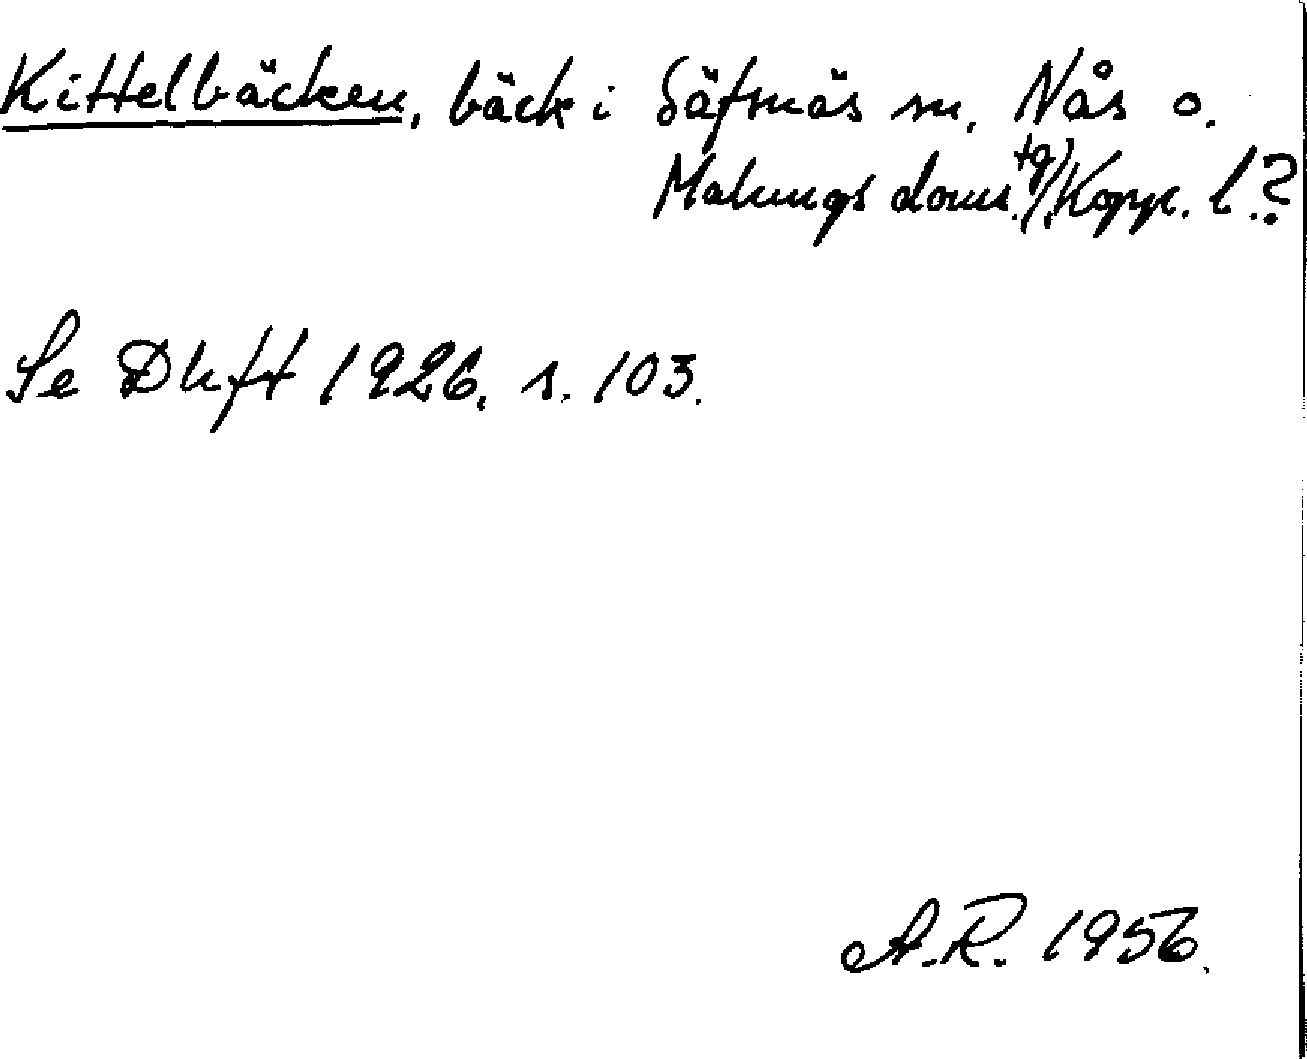 Kittelbäcken, bäck i Säfsnäs sn, Nås o.
Malungs doms.tg, Kopp. l.?
Se Dhft 1926, s. 103.
A.R. 1956.